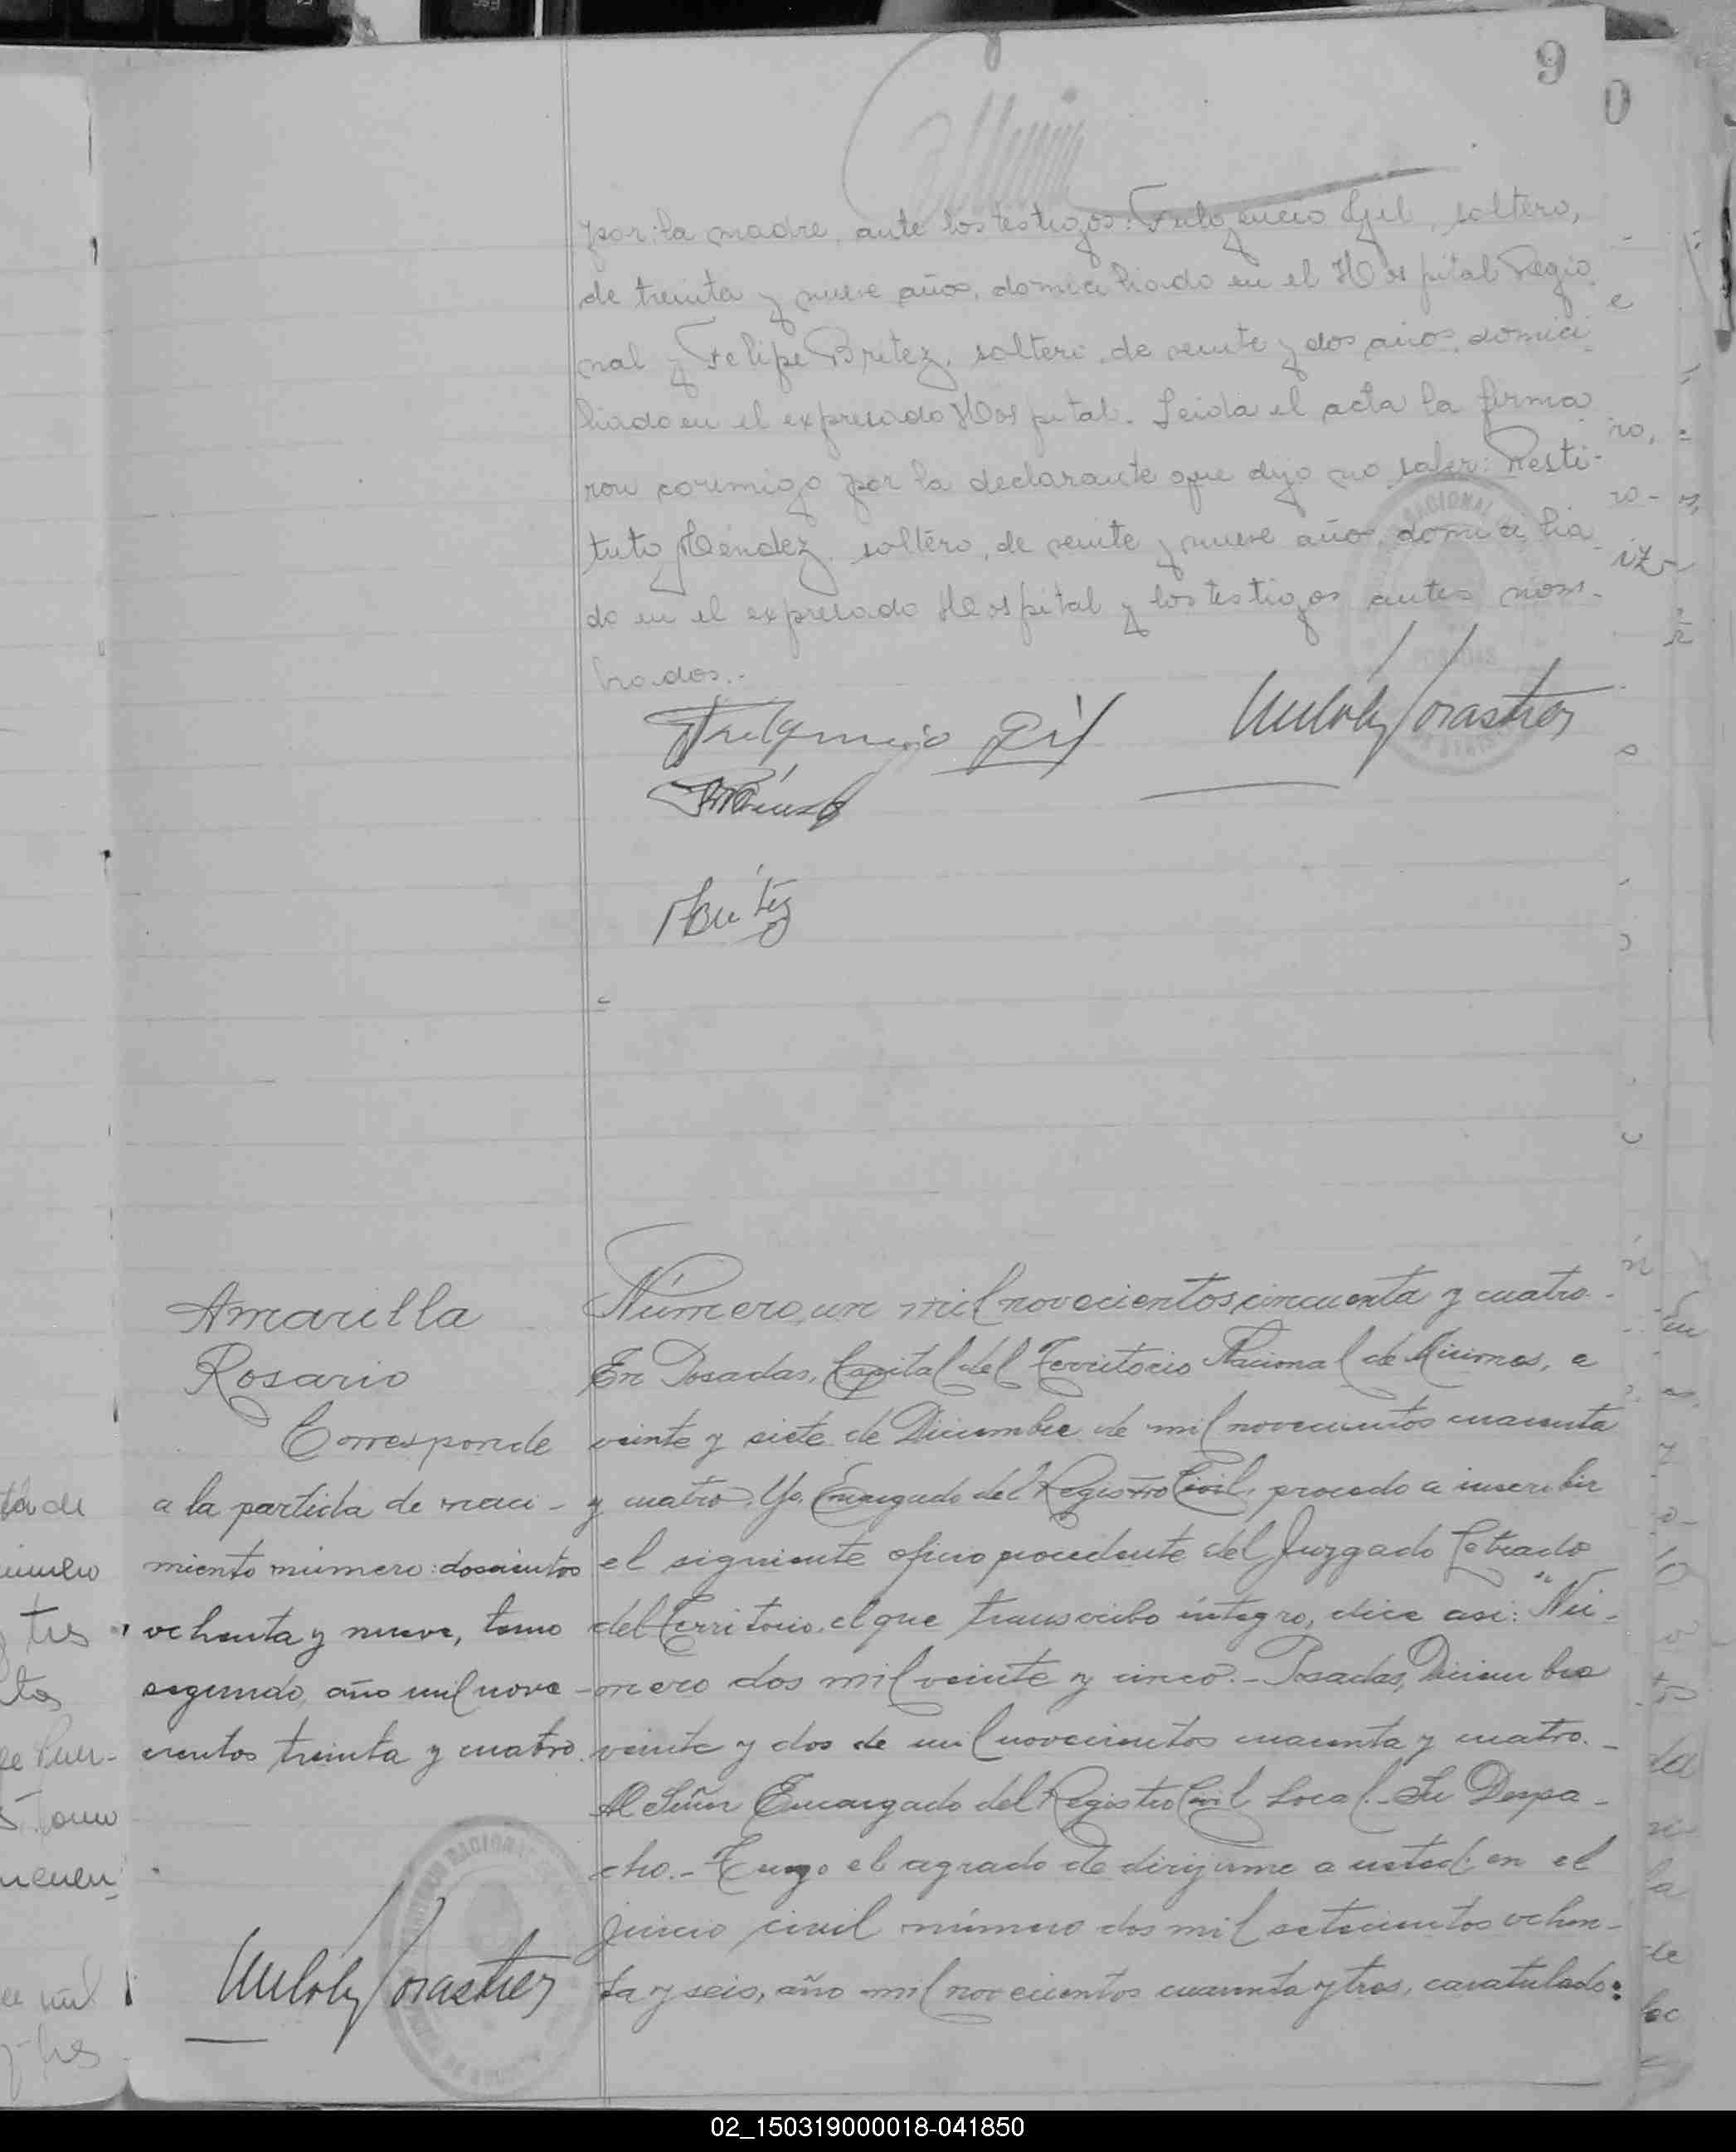 9
por la madre, ante los testigos: Fulgencio Gil, soltero,
de treinta y nueve años, domiciliado en el Hospital Regio
nal y Felipe Britez, soltero, de veinte y dos años, domici
liado en el expresado Hospital. Leida el acta la firma
ron conmigo por la declarante que dijo no saber: Resti-
tuto Méndez, soltero, de veinte y nueve años, domicilia
do en el expresado Hospital y los testigos antes nom-
brados.-
Fulgencio Gil
FBritez
Amarilla
Rosario
Corresponde
a la partida de naci-
miento número: doscientos
ochenta y nueve, tomo
segundo, año mil nove-
cientos treinta y cuatro.
Número, un mil novecientos cincuenta y cuatro.-
En Posadas, Capital del Territorio Nacional de Misiones, a
veinte y siete de Diciembre de mil novecientos cuarenta
y cuatro. Yo, Encargado del Registro Civil, procedo a inscribir
el siguiente oficio procedente del Juzgado Letrado
del Territorio, el que transcribo íntegro, dice asi: "Nú-
mero dos mil veinte y cinco.- Posadas, Diciembre
veinte y dos de mil novecientos cuarenta y cuatro.-
Al Señor Encargado del Registro Civil Local.- Su Despa-
cho.- Tengo el agrado de dirijirme a usted en el
juicio civil número dos mil setecientos ochen-
ta y seis, año mil novecientos cuarenta y tres, caratulado:
02_150319000018-041850